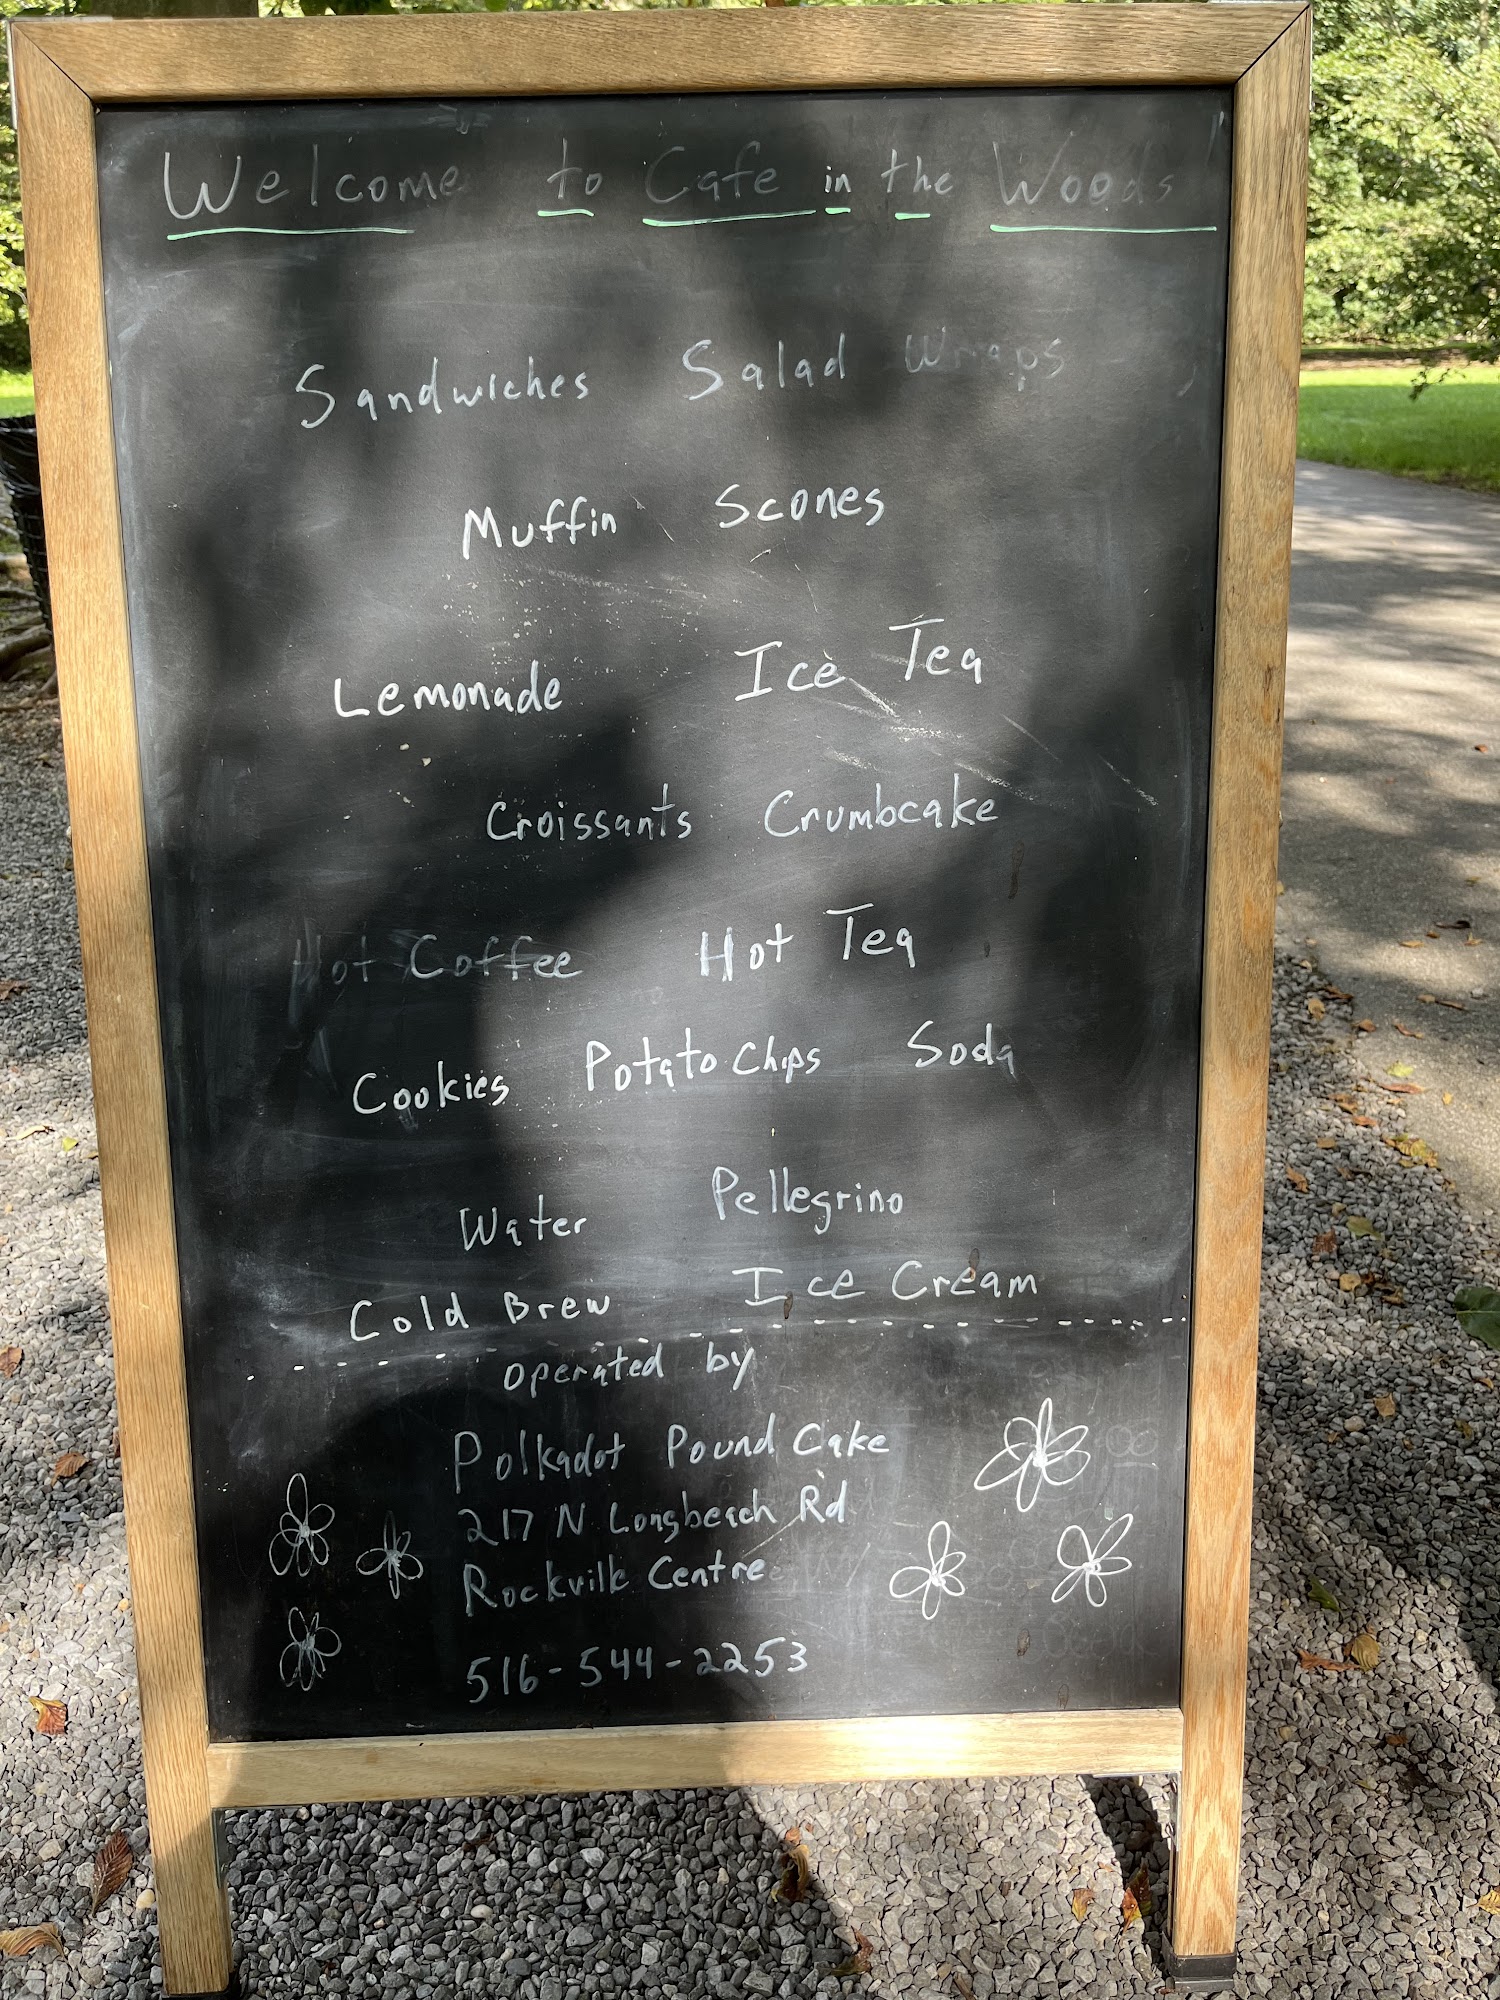 Welcome to Cafe in the Woods
Sandwiches Salad Wraps
Muffin Scones
Lemonade Ice Tea
Croissants Crumbcake
Hot Coffee Hot Tea
Cookies Potato Chips Soda
Water Pellegrino
Cold Brew Ice Cream
operated by
Polkadot Pound Cake
217 N Longbeach Rd
Rockville Centre
516-544-2253